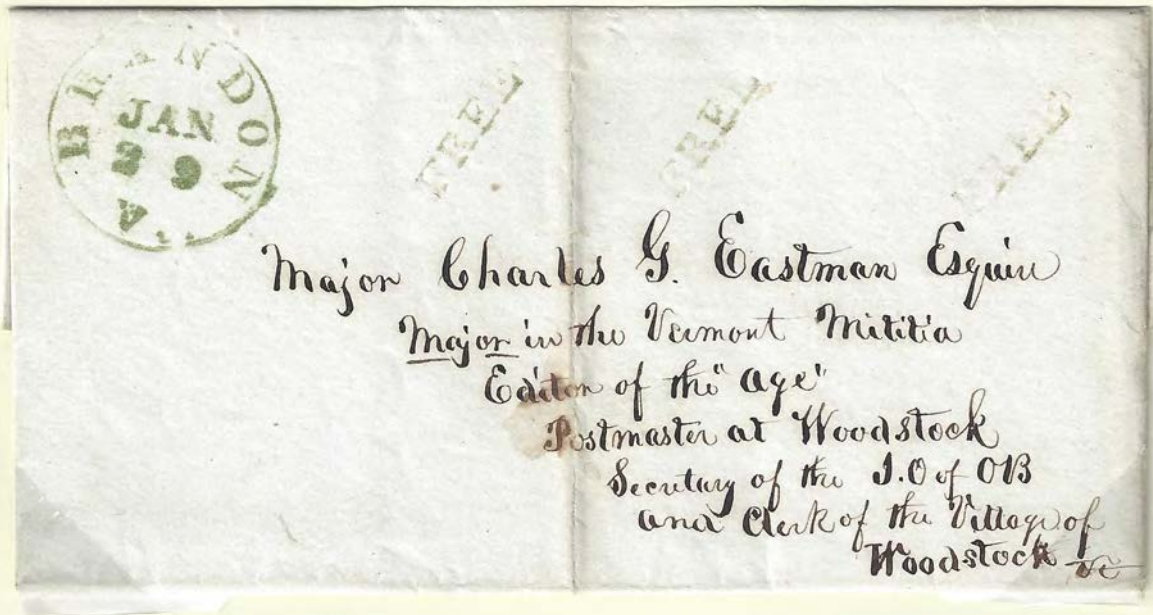 BRANDON
JAN
29
FREE
FREE
FREE
Major Charles G. Eastman Esquire
Major in the Vermont Militia
Editor of the "Age"
Postmaster at Woodstock
Secretary of the I.O of OB
and Clerk of the Village of
Woodstock Vt